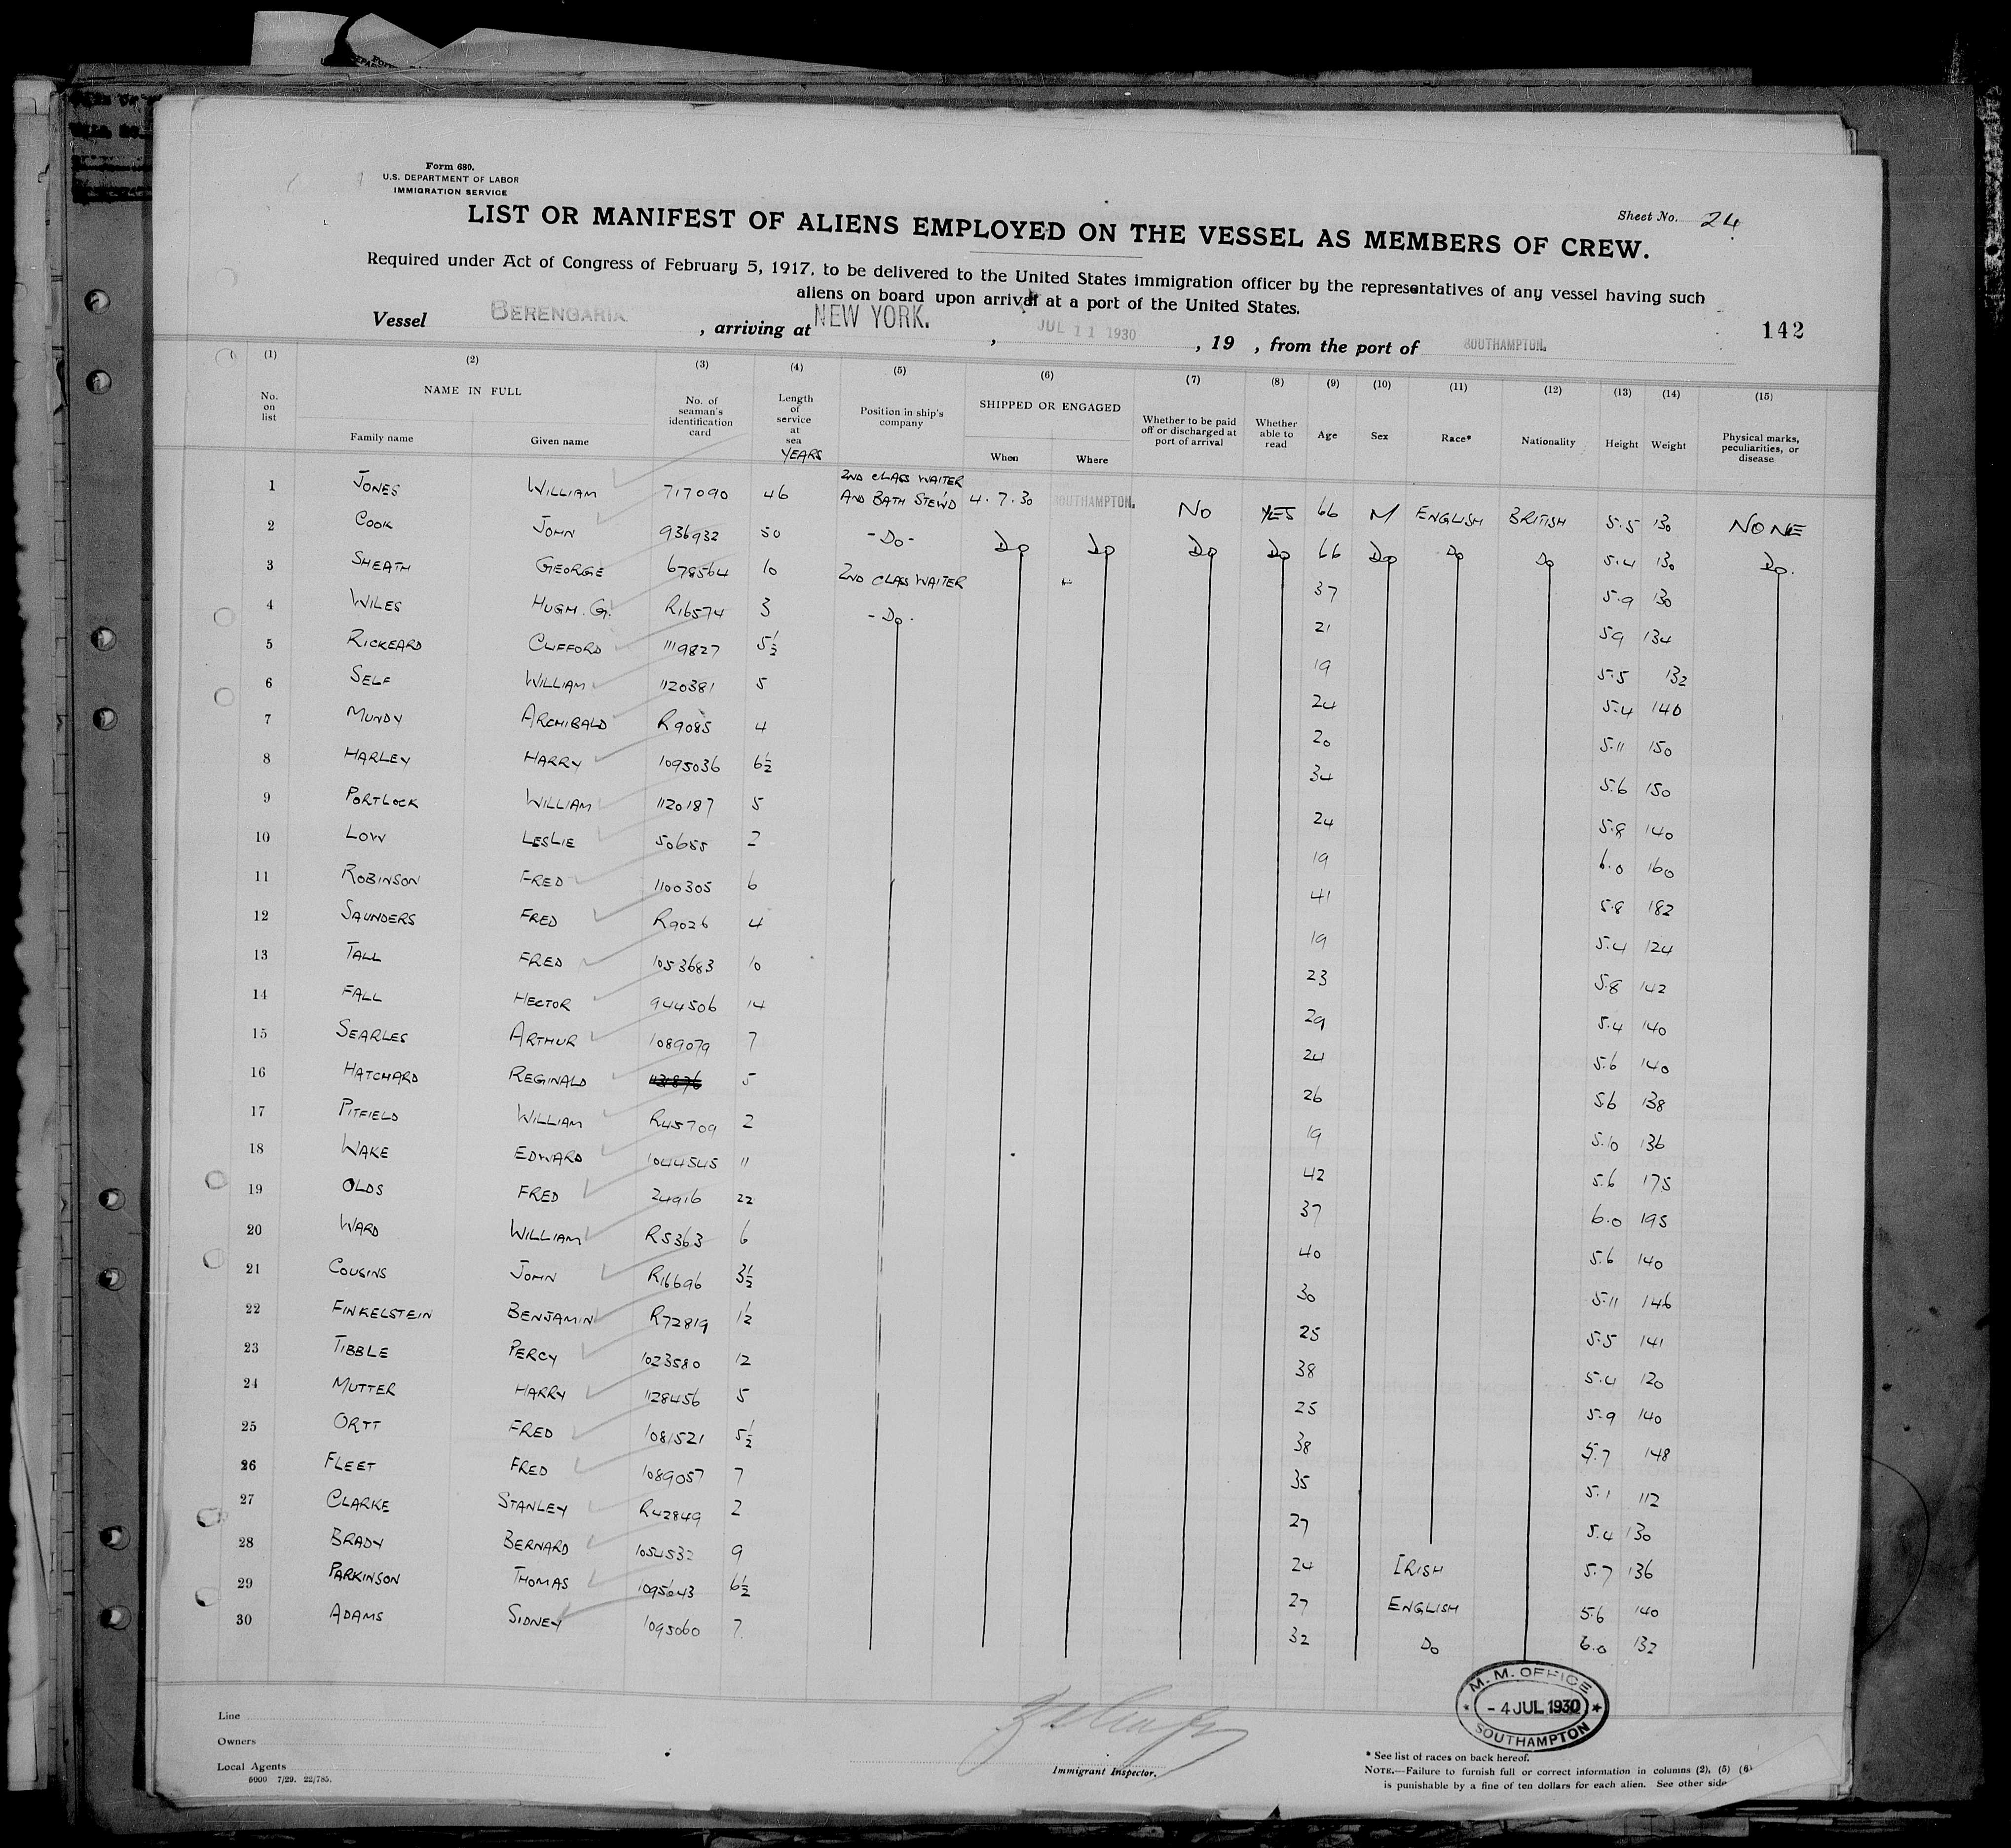 Form 680.
U.S. DEPARTMENT OF LABOR
IMMIGRATION SERVICE
Sheet No. 24
LIST OR MANIFEST OF ALIENS EMPLOYED ON THE VESSEL AS MEMBERS OF CREW.
Required under Act of Congress of February 5, 1917, to be delivered to the United States immigration officer by the representatives of any vessel having such
aliens on board upon arrival at a port of the United States.
Vessel BERENGARIA , arriving at NEW YORK. , JUL 11 1930 , 19 , from the port of SOUTHAMPTON.
142
(1) (2) (3) (4) (5) (6) (7) (8) (9) (10) (11) (12) (13) (14) (15)
No. on list NAME IN FULL Family name Given name No. of seaman's identification card Length of service at sea YEARS Position in ship's company SHIPPED OR ENGAGED When Where Whether to be paid off or discharged at port of arrival Whether able to read Age Sex Race* Nationality Height Weight Physical marks, peculiarities, or disease
1 JONES WILLIAM 717090 46 2ND CLASS WAITER AND BATH STEW'D 4.7.30 SOUTHAMPTON. NO YES 66 M ENGLISH BRITISH 5.5 130 NONE
2 COOK JOHN 936932 50 -DO- DO DO DO DO 66 DO DO DO 5.4 130 DO.
3 SHEATH GEORGE 678564 10 2ND CLASS WAITER 37 5.9 130
4 WILES HUGH. G. R16574 3 -DO- 21 59 134
5 RICKEARD CLIFFORD 1119827 5½ 19 5.5 132
6 SELF WILLIAM 1120381 5 24 5.4 140
7 MUNDY ARCHIBALD R9085 4 20 5.11 150
8 HARLEY HARRY 1095036 6½ 34 5.6 150
9 PORTLOCK WILLIAM 1120187 5 24 5.8 140
10 LOW LESLIE 50655 2 19 6.0 160
11 ROBINSON FRED 1100305 6 41 5.8 182
12 SAUNDERS FRED R9026 4 19 5.4 124
13 TALL FRED 1053683 10 23 5.8 142
14 FALL HECTOR 944506 14 29 5.4 140
15 SEARLES ARTHUR 1089079 7 24 5.6 140
16 HATCHARD REGINALD 5 26 56 138
17 PITFIELD WILLIAM R45709 2 19 5.10 136
18 WAKE EDWARD 1044545 11 42 5.6 175
19 OLDS FRED 24916 22 37 6.0 195
20 WARD WILLIAM R5363 6 40 5.6 140
21 COUSINS JOHN R16696 3½ 30 5.11 146
22 FINKELSTEIN BENJAMIN R72819 1½ 25 5.5 141
23 TIBBLE PERCY 1023580 12 38 5.4 120
24 MUTTER HARRY 1128456 5 25 5.9 140
25 ORTT FRED 1081521 5½ 38 5.7 148
26 FLEET FRED 1089057 7 35 5.1 112
27 CLARKE STANLEY R42849 2 27 5.4 130
28 BRADY BERNARD 1054532 9 24 IRISH 5.7 136
29 PARKINSON THOMAS 1095643 6½ 27 ENGLISH 5.6 140
30 ADAMS SIDNEY 1095060 7. 32 DO 6.0 132
M.M. OFFICE
- 4 JUL 1930
SOUTHAMPTON
Line
Owners
Local Agents
5000 7/29. 22/785.
Immigrant Inspector.
* See list of races on back hereof.
NOTE.—Failure to furnish full or correct information in columns (2), (5) (6)
is punishable by a fine of ten dollars for each alien. See other side